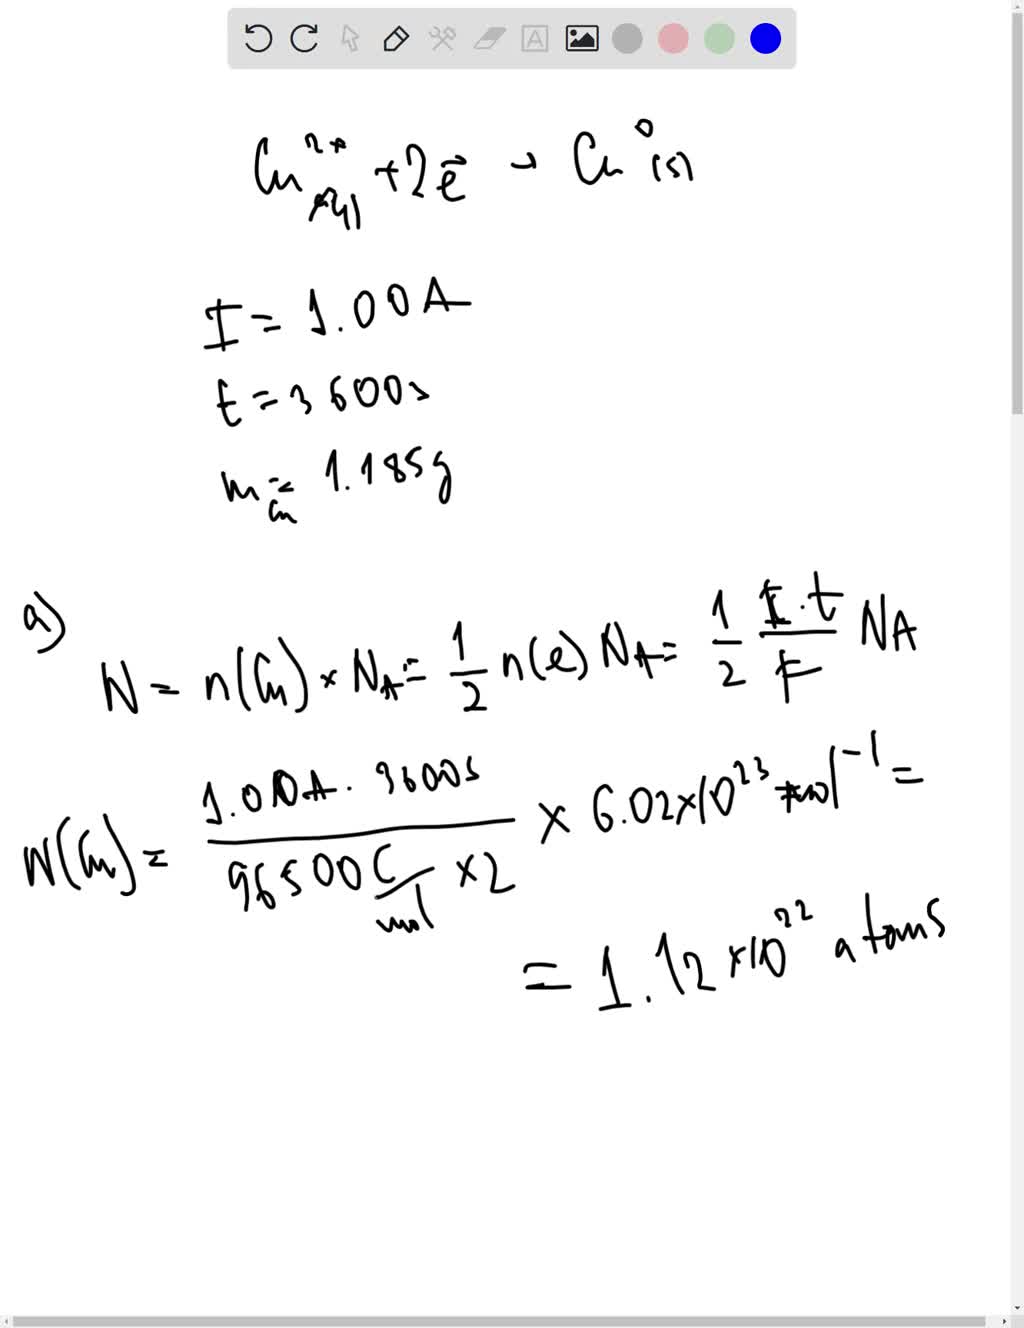 Cu²⁺(aq) + 2e⁻ → Cu⁰(s)
I = 1.00A
t = 3600s
m Cu = 1.185g
a)
N = n(Cu) × NA = 1/2 n(e) NA = 1/2 I·t/F NA
N(Cu) = 1.00A · 3600s / 96500 C/mol × 2 × 6.02×10²³ mol⁻¹ =
= 1.12 ×10²² atoms